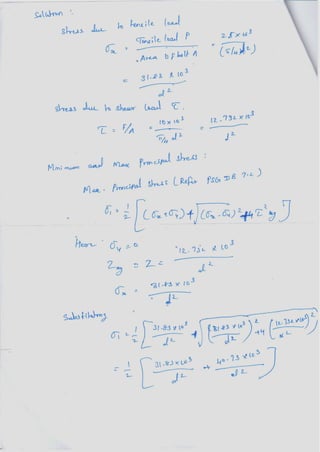 Solution :
Stress due to tensile load
σx = Tensile load P / Area of bolt A = 25×10³ / (π/4 d²)
= 31.83 × 10³ / d²
Stress due to shear load τ.
τ = F/A = 10×10³ / π/4 d² = 12.732×10³ / d²
Minimum and Max principal stress :
Max. principal stress (Refer PSG DB 7.2)
σ₁ = 1/2 [ (σx+σy) + √(σx-σy)² + 4τ²xy ]
Here σy = 0
τxy = τ = 12.732 × 10³ / d²
σx = 31.83 × 10³ / d²
Substituting
σ₁ = 1/2 [ 31.83×10³ / d² + √(31.83×10³ / d²)² + 4 (12.732×10³ / d²)²
= 1/2 [ 31.83×10³ / d² + 40.73×10³ / d² ]